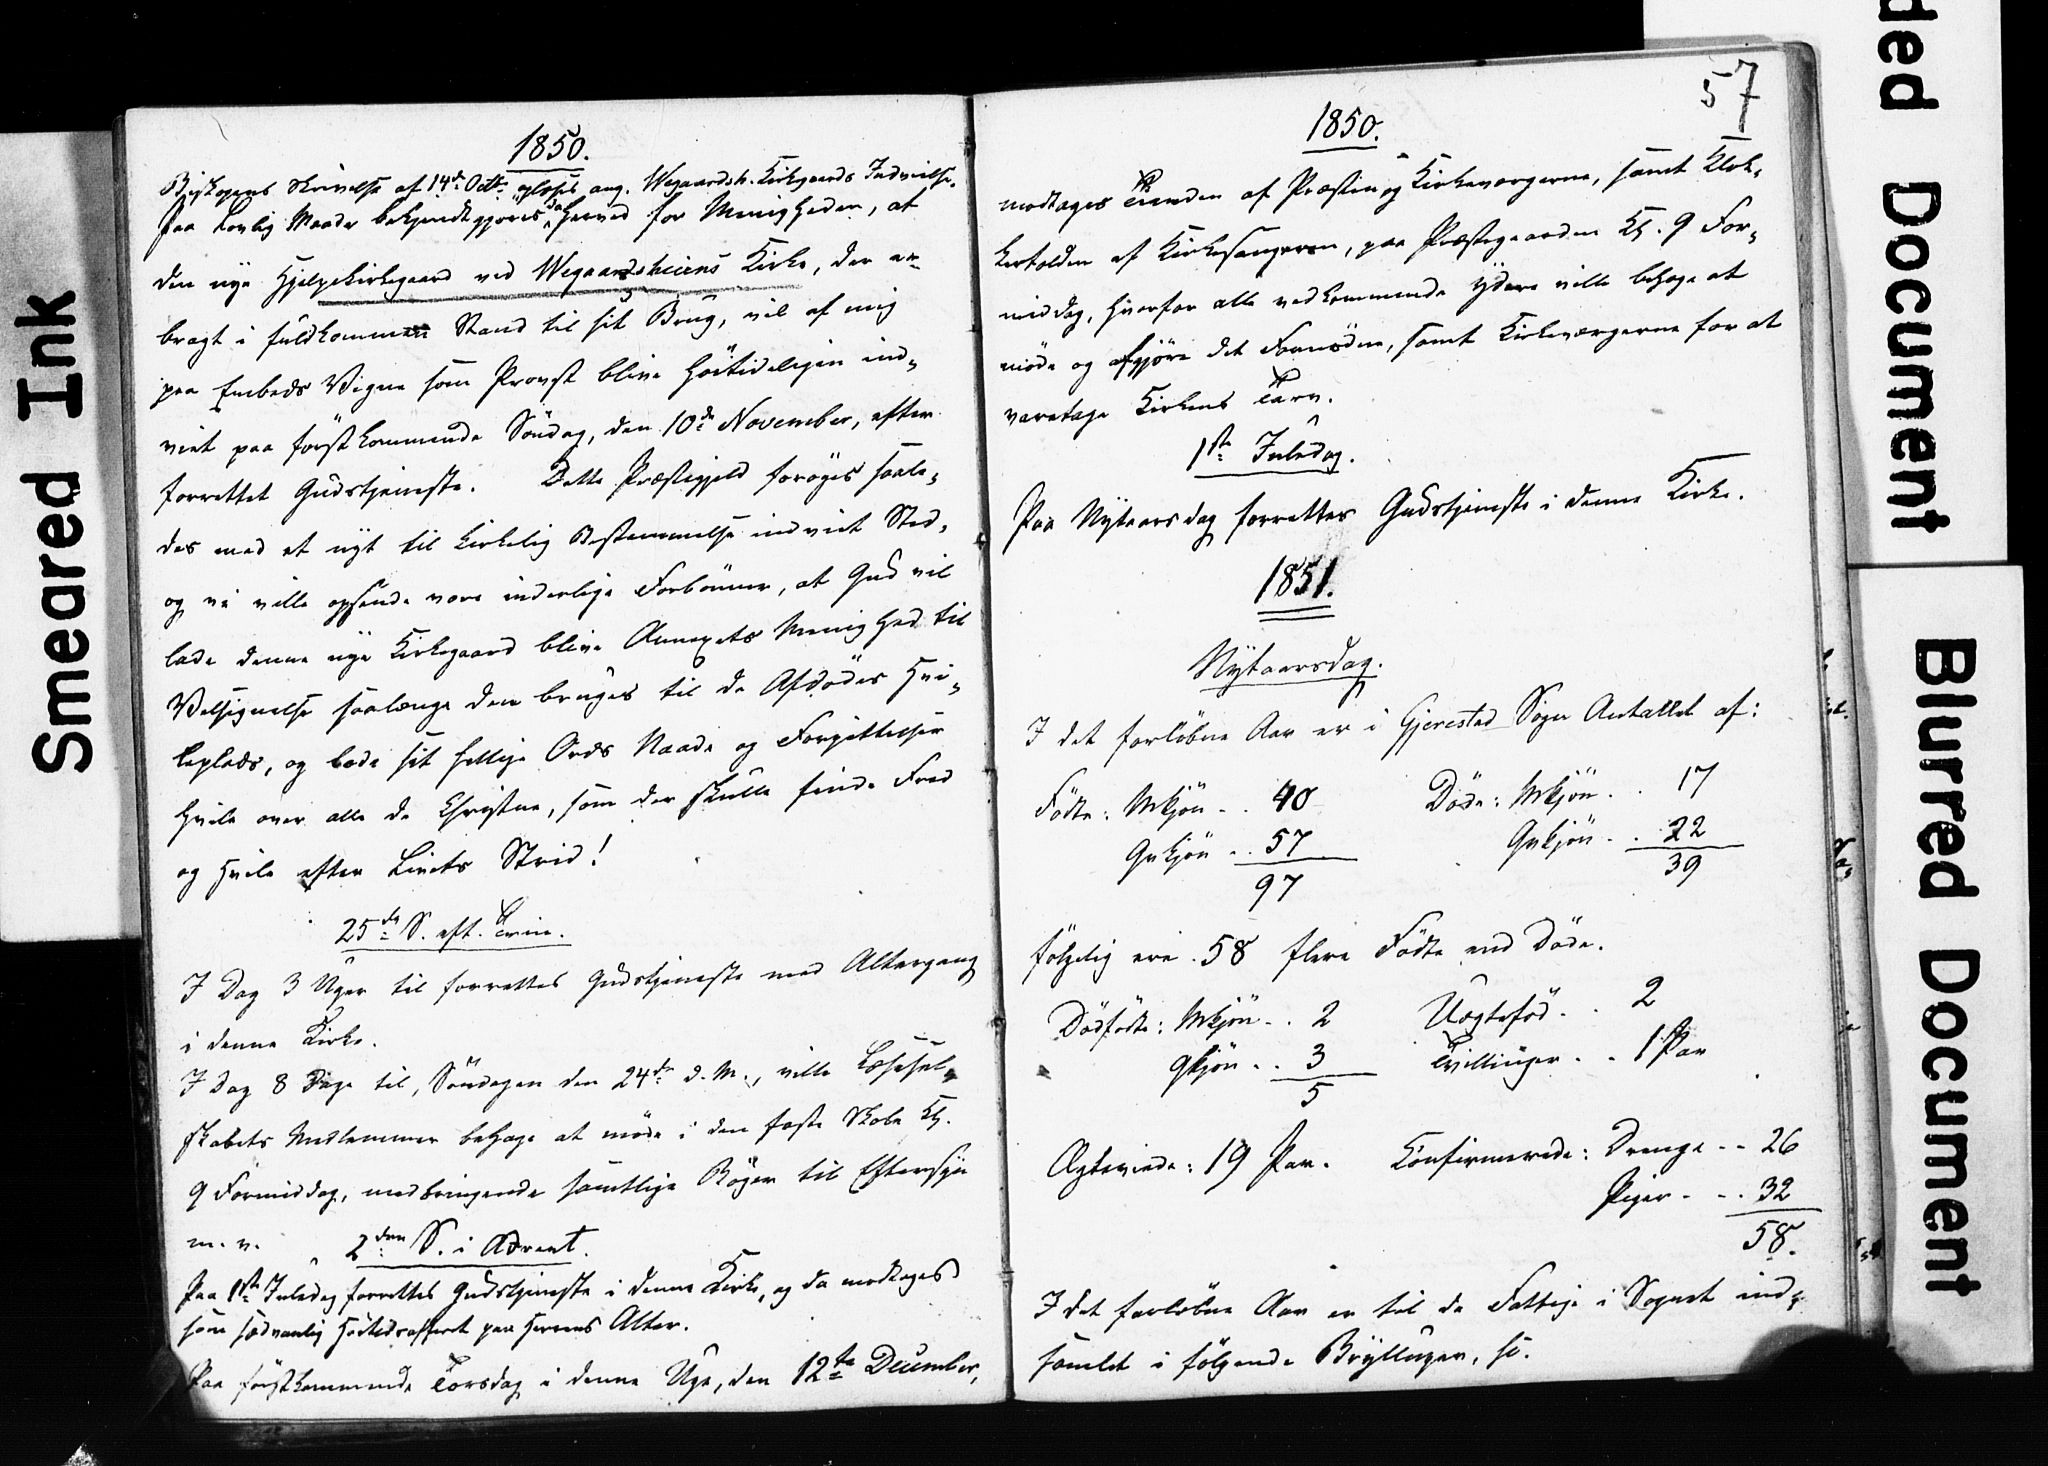 Smeared Ink
1850.
Biskopens Skrivelse af 14de Octbr. oplæst ang. Wegaardsh. Kirkegaards Indvielse.
Paa lovlig Maade bekjendtgjøres da herved for Menigheden, at
den nye Hjelpekirkegaard ved Wegaardsheiens Kirke, der er
bragt i fuldkommen Stand til sit Brug, vil af mig
paa Embeds Vegne som Provst blive höitideligen ind-
viet paa förstkommende Söndag, den 10de November, efter
forrettet Gudstjeneste. Dette Præstegjeld forøges saale-
des med et nyt til kirkelig Bestemmelse indviet Sted,
og vi ville opsende vore inderlige Forbönner, at Gud vil
lade denne nye Kirkegaard blive Annexets Menighed til
Velsignelse saalænge den bruges til de Afdödes Hvi-
leplads, og lade sit hellige Ords Naade og Forjettelser
hvile over alle de Christne, som der skulle finde Fred
og Hvile efter Livets Strid!
25de S. eft. Trin.
I Dag 3 Uger til forrettes Gudstjeneste med Altergang
i denne Kirke.
I Dag 8 Dage til, Söndagen den 24de d. M., ville Læsesel-
skabets Medlemmer behage at möde i den faste Skole Kl.
9 Formiddag, medbringende samtlige Böger til Eftersyn
m. v.
2den S. i Advent.
Paa 1ste Juledag forrettes Gudstjeneste i denne Kirke, og da modtages
som sædvanlig Höitidsofferet paa Herrens Alter.
Paa förstkommende Torsdag i denne Uge, den 12te December,
57
1850.
modtages Tienden af Præsten og Kirkeværgerne, samt Klok-
kertolden af Kirkesangeren, paa Præstegaarden Kl. 9 For-
middag, hvorfor alle vedkommende Ydere ville behage at
möde og afgjöre det Fornödne, samt Kirkeværgerne for at
varetage Kirkens Tarv.
1ste Juledag.
Paa Nytaarsdag forrettes Gudstjeneste i denne Kirke.
1851.
Nytaarsdag.
I det forløbne Aar er i Gjerestad Sogn Antallet af:
Födte: Mkjön .. 40 Döde: Mkjön .. 17
Qvkjön .. 57 Qvkjön .. 22
97 39
følgelig ere 58 flere Födte end Döde.
Dödfödte: Mkjön .. 2 Uægtefød .. 2
Qkjön .. 3 Tvillinger .. 1 Par
5
Ægteviede: 19 Par. Confirmerede: Drenge -- 26
Piger - -. 32
58.
I det forløbne Aar er til de Fattige i Sognet ind-
samlet i følgende Bryllupper, sc.
ded Document
Blurred Document